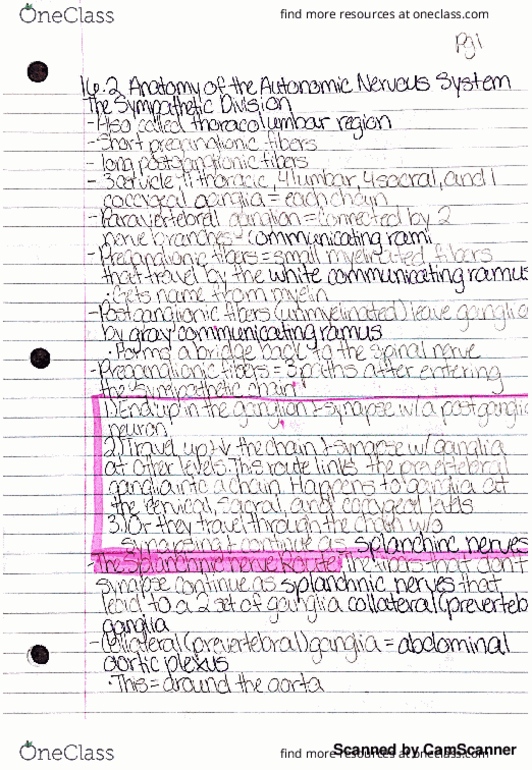 OneClass
find more resources at oneclass.com
Pg 1
16.2 Anatomy of the Autonomic Nervous System
The Sympathetic Division
- Also called thoracolumbar region
- Short preganglionic fibers
- long postganglionic fibers
- 3 cervicle, 11 thoracic, 4 lumbar, 4 sacral, and 1
coccygeal ganglia = each chain
- Paravertebral ganglion = connected by 2
nerve branches - communicating rami
- Preganglionic fibers = small myelinated fibers
that travel by the white communicating ramus
· Gets name from myelin
- Postganglionic fibers (unmyelinated) leave ganglia
by gray communicating ramus
· Forms a bridge back to the spinal nerve
- Preganglionic fibers = 3 paths after entering
the sympathetic chain
1) End up in the ganglion + synapse w/ a postganglio
neuron
2) Travel up + ↓ the chain + synapse w/ ganglia
at other levels. This route links the prevertebral
ganglia into a chain. Happens to ganglia at
the cervical, sacral, and coccygeal levels
3) Or they travel through the chain w/o
synapsing + continue as splanchinc nerves
- The Splanchnic nerve Route: the that don't
synapse continue as splanchnic nerves that
lead to a 2 set of ganglia collateral (preverteb
ganglia
- Collateral (prevertebral) ganglia = abdominal
aortic plexus
· This = around the aorta
OneClass
find more resources at oneclass.com
Scanned by CamScanner